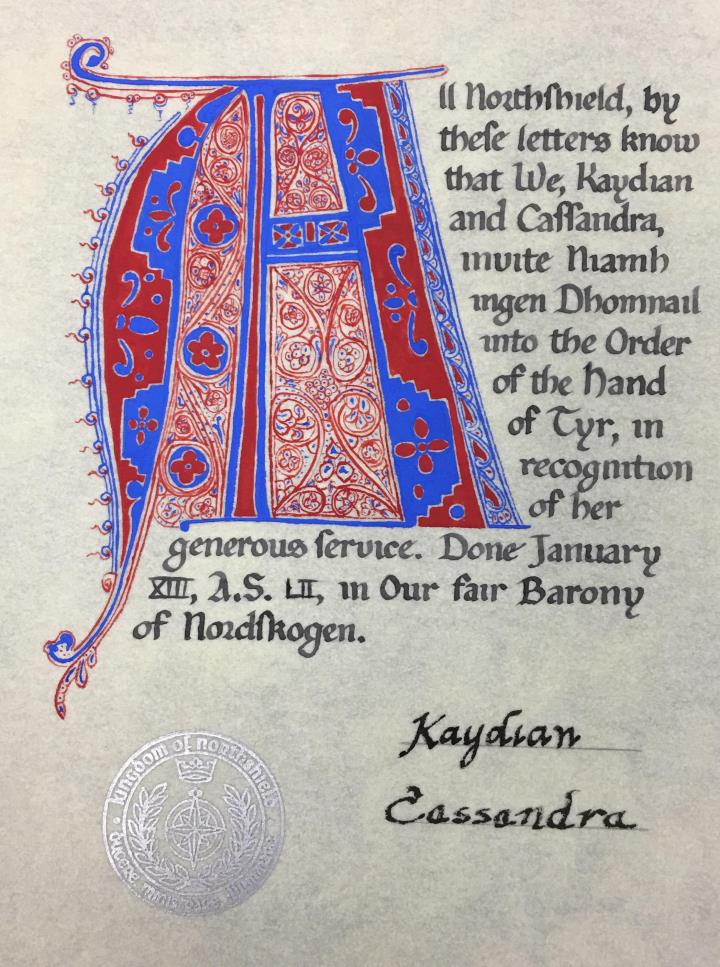 All Northſhield, by
theſe letters know
that We, Kaydian
and Caſſandra,
invite Niamh
ingen Dhomnail
into the Order
of the Hand
of Tyr, in
recognition
of her
generous ſervice. Done January
XIII, A.S. LII, in Our fair Barony
of Nordſkogen.
Kaydian
Cassandra
kingdom of northshield